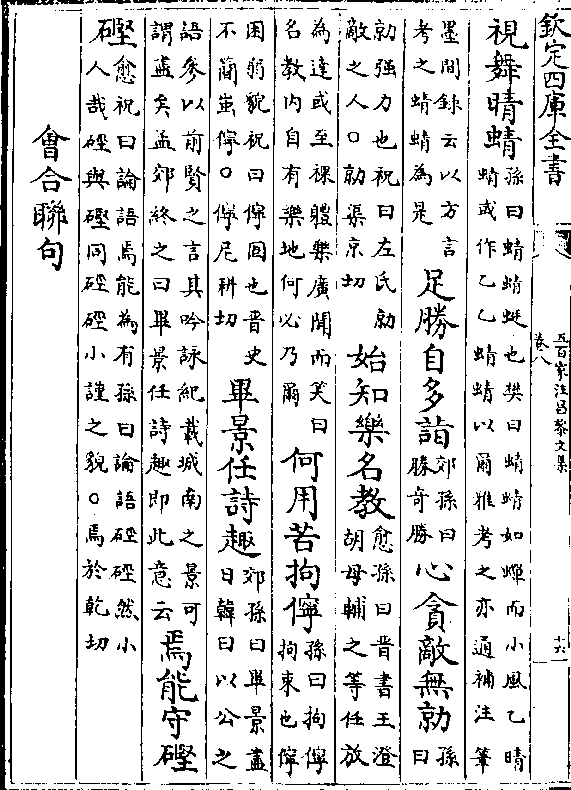 欽定四庫全書
五百家注昌黎文集
卷八
十六
視舞晴蜻
孫曰蜻蜻蜓也樊曰蜻蜻如蟬而小風乙晴
蜻或作乙乙蜻蜻以爾雅考之亦通補注筆
墨間録云以方言
考之蜻蜻為是
足勝自多詣
郊孫曰
勝奇勝
心貪敵無勍
孫
曰
勍强力也祝曰左氏勍
敵之人○勍渠京切
始知樂名教
愈孫曰晋書王澄
胡母輔之等任放
為達或至裸體樂廣聞而笑曰
名教内自有樂地何必乃爾
何用苦拘儜
孫曰拘儜
拘束也儜
困弱貌祝曰儜困也晋史
不蕳蚩儜○儜尼耕切
畢景任詩趣
郊孫曰畢景盡
日韓曰以公之
語參以前賢之言其吟詠紀載城南之景可
謂盡矣孟郊終之曰畢景任詩趣即此意云
焉能守硜
硜
愈祝曰論語焉能為有孫曰論語硜硜然小
人哉硜與硜同硜硜小謹之貌○焉於乾切
會合聯句